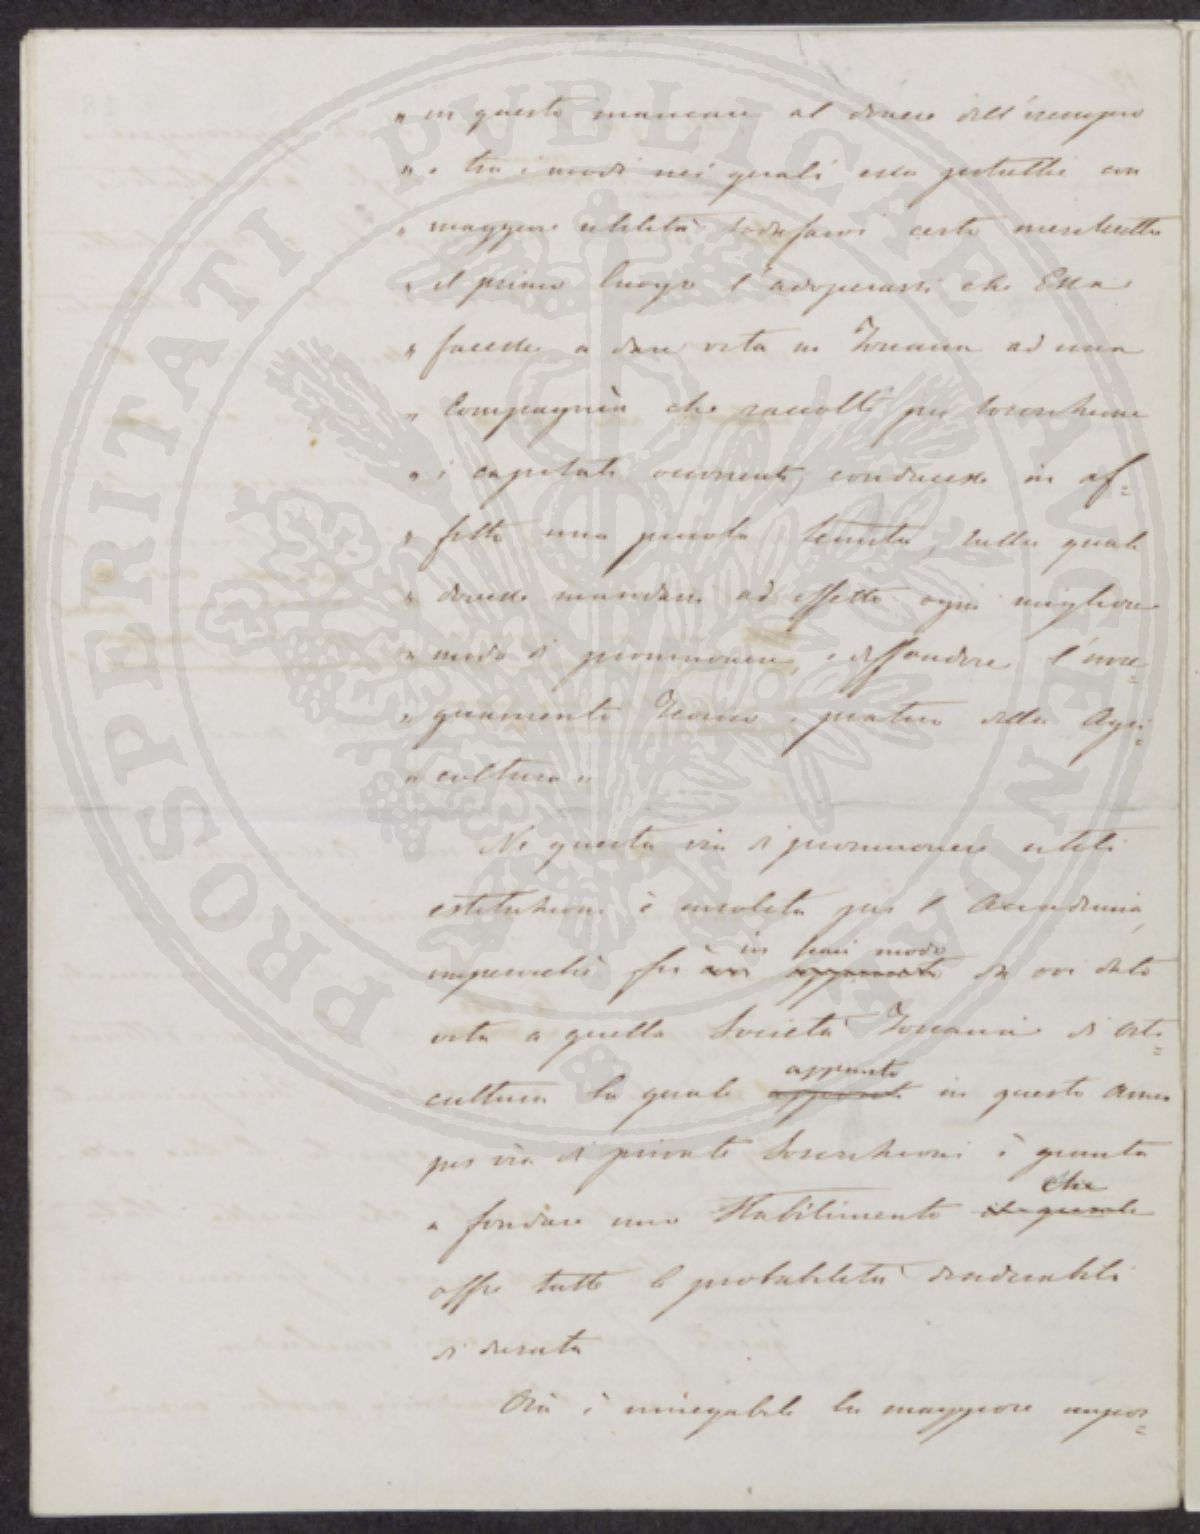 " in questo mancare al dovere dell'esempio
" e tra i modi nei quali essa potrebbe con
" maggiore utilità sodisfarvi certo meritereble
" il primo luogo l'adoperarsi che Essa
" facesse a dare vita in Toscana ad una
" Compagnia che raccolti per soscrizione
" i capitali occorrenti, conducesse in af=
" fitto una piccola tenuta, sulla quale
" dovesse mandarsi ad effetto ogni migliore
" modo di promuovere, e diffondere l'inse=
" gnamento Teorico e pratico della Agri=
" coltura "
Nè questa via di promuovere utili
istituzioni è insolita per l'Accademia,
imperocchè fu in tai modo da voi data
vita a quella Società Toscana di Orti=
cultura la quale appunto in questo anno
per via di private soscrizioni è giunta
a fondare uno Stabilimento che
offre tutte le probabilità desiderabili
di durata
Ora è innegabile la maggiore impor=
PROSPERITATI PUBLICAE AUGENDAE